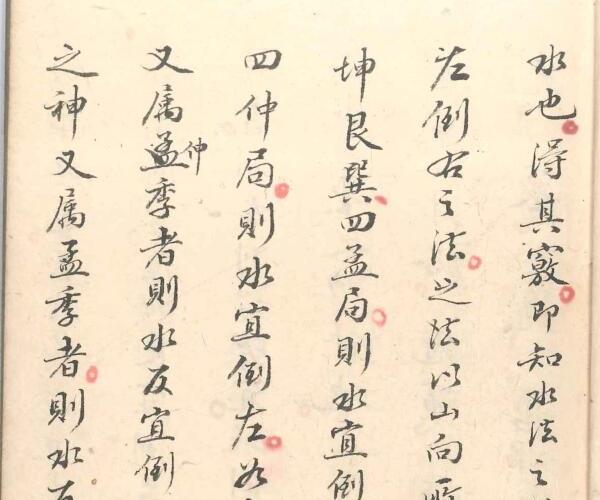 水也得其竅即知水法之
左倒右之法之法以山向
坤艮巽四孟局則水宜倒
四仲局則水宜倒左如
又属孟仲季者則水反宜倒
之神又属孟季者則水反